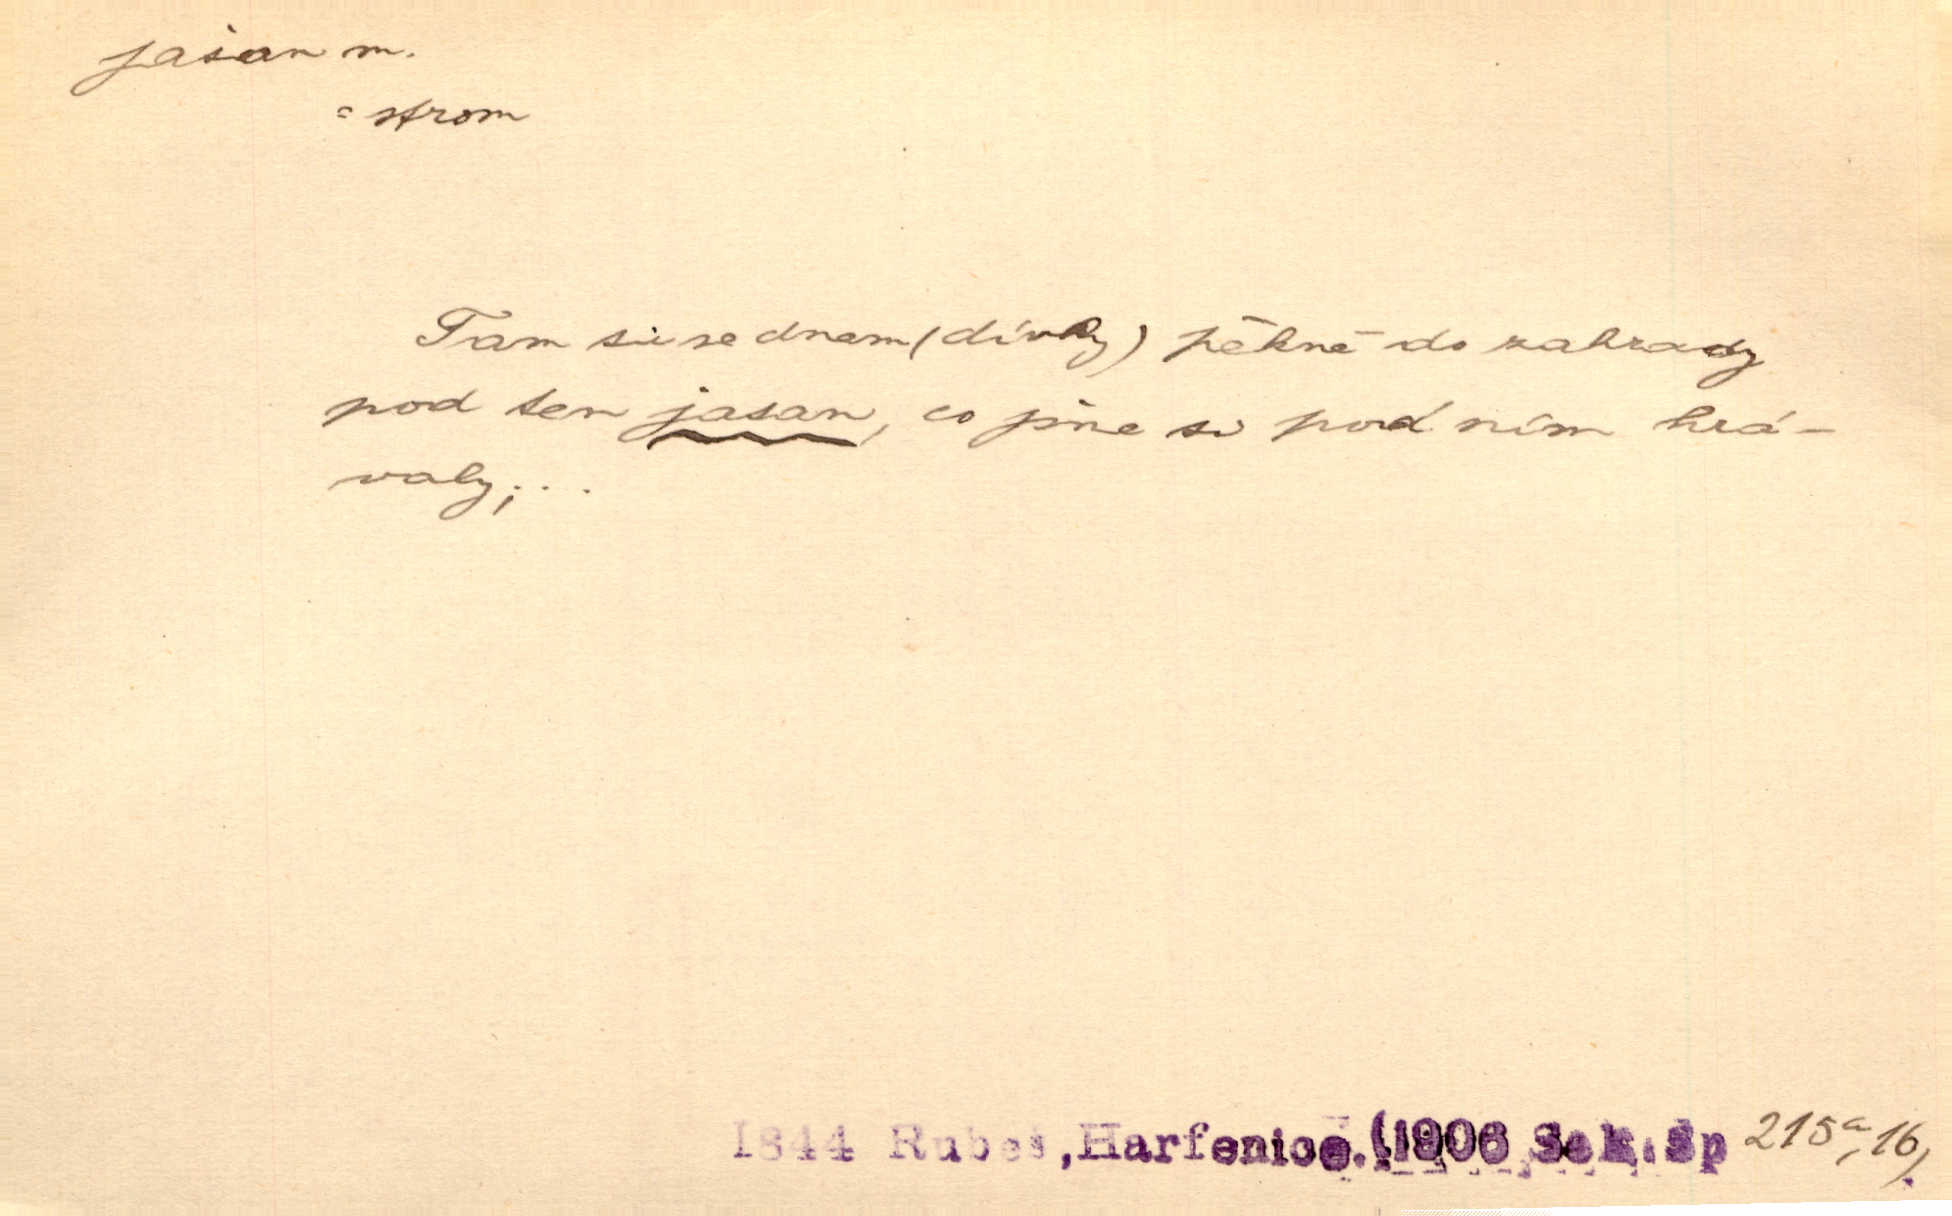 jasan m.
= strom
Tam si sednem (dívky) pěkně do zahrady
pod ten jasan, co jsme si pod ním hrá-
valy; . . .
1844 Rubeš, Harfenice. (1906 Seb. Sp 215a, 16)